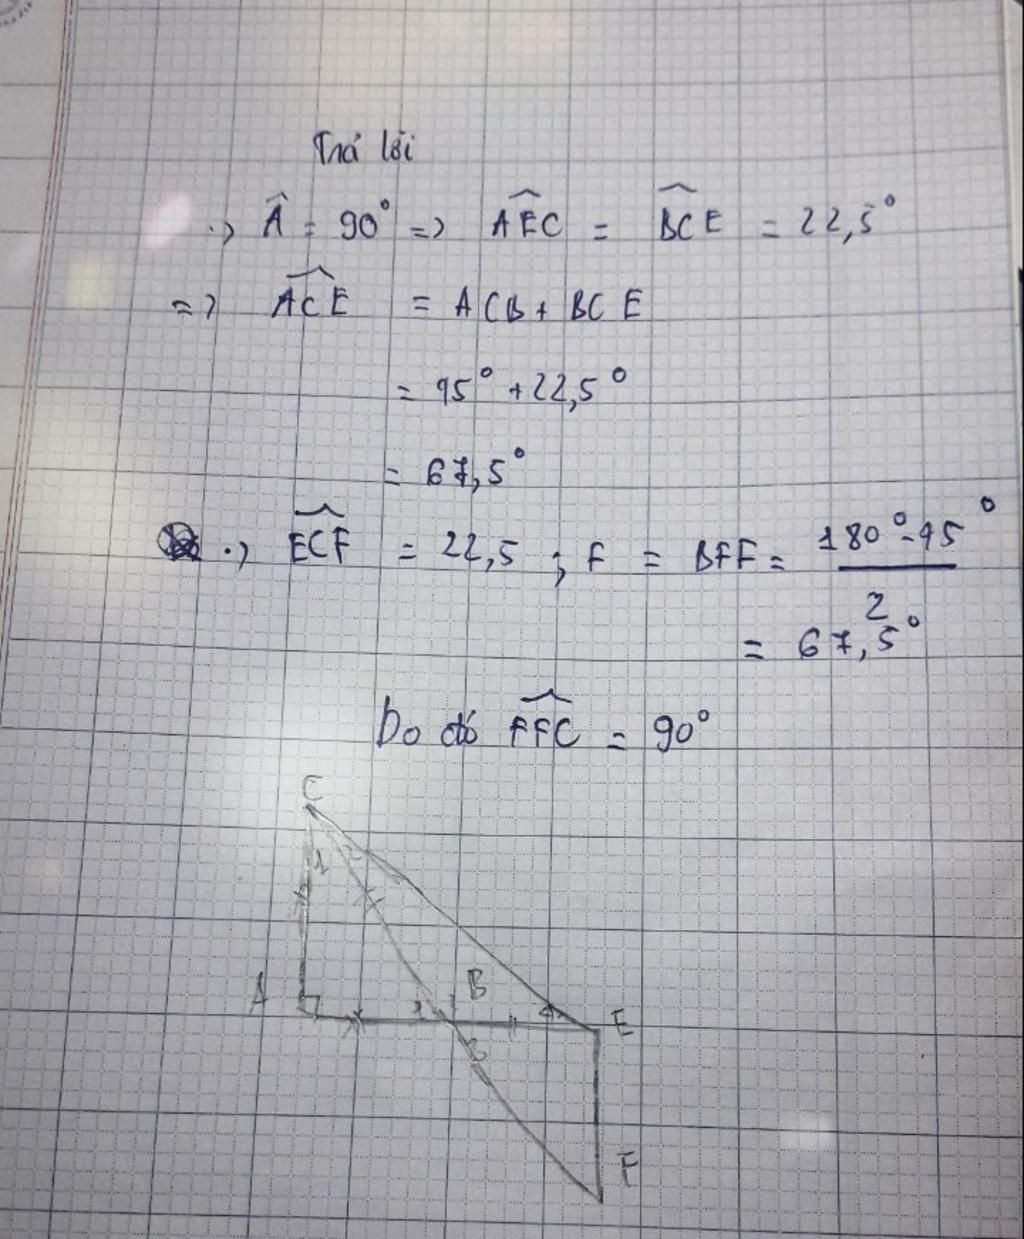 Trả lời
·) Â = 90° => AEC = BCE = 22,5°
=> ACE = ACB + BCE
= 45° + 22,5°
= 67,5°
·) ECF = 22,5 ; F = BFF = 180° - 45° / 2
= 67,5°
Do đó FFC = 90°
C
1 2
A 1 B E
3
F